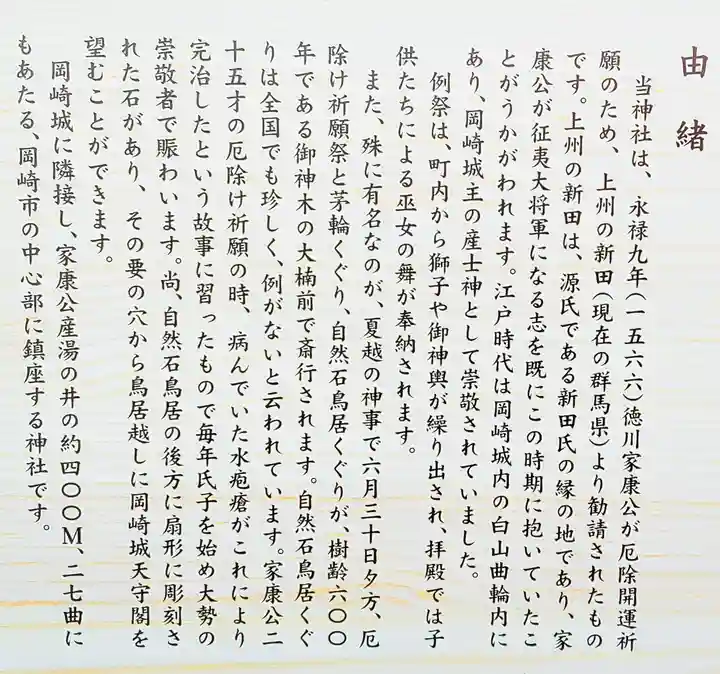 由緒
当神社は、永禄九年(一五六六)徳川家康公が厄除開運祈
願のため、上州の新田(現在の群馬県)より勧請されたもの
です。上州の新田は、源氏である新田氏の縁の地であり、家
康公が征夷大将軍になる志を既にこの時期に抱いていたこ
とがうかがわれます。江戸時代は岡崎城内の白山曲輪内に
あり、岡崎城主の産士神として崇敬されていました。
例祭は、町内から獅子や御神輿が繰り出され、拝殿では子
供たちによる巫女の舞が奉納されます。
また、殊に有名なのが、夏越の神事で六月三十日夕方、厄
除け祈願祭と茅輪くぐり、自然石鳥居くぐりが、樹齢六〇〇
年である御神木の大楠前で斎行されます。自然石鳥居くぐ
りは全国でも珍しく、例がないと云われています。家康公二
十五才の厄除け祈願の時、病んでいた水疱瘡がこれにより
完治したという故事に習ったもので毎年氏子を始め大勢の
崇敬者で賑わいます。尚、自然石鳥居の後方に扇形に彫刻さ
れた石があり、その要の穴から鳥居越しに岡崎城天守閣を
望むことができます。
岡崎城に隣接し、家康公産湯の井の約四〇〇M、二七曲に
もあたる、岡崎市の中心部に鎮座する神社です。